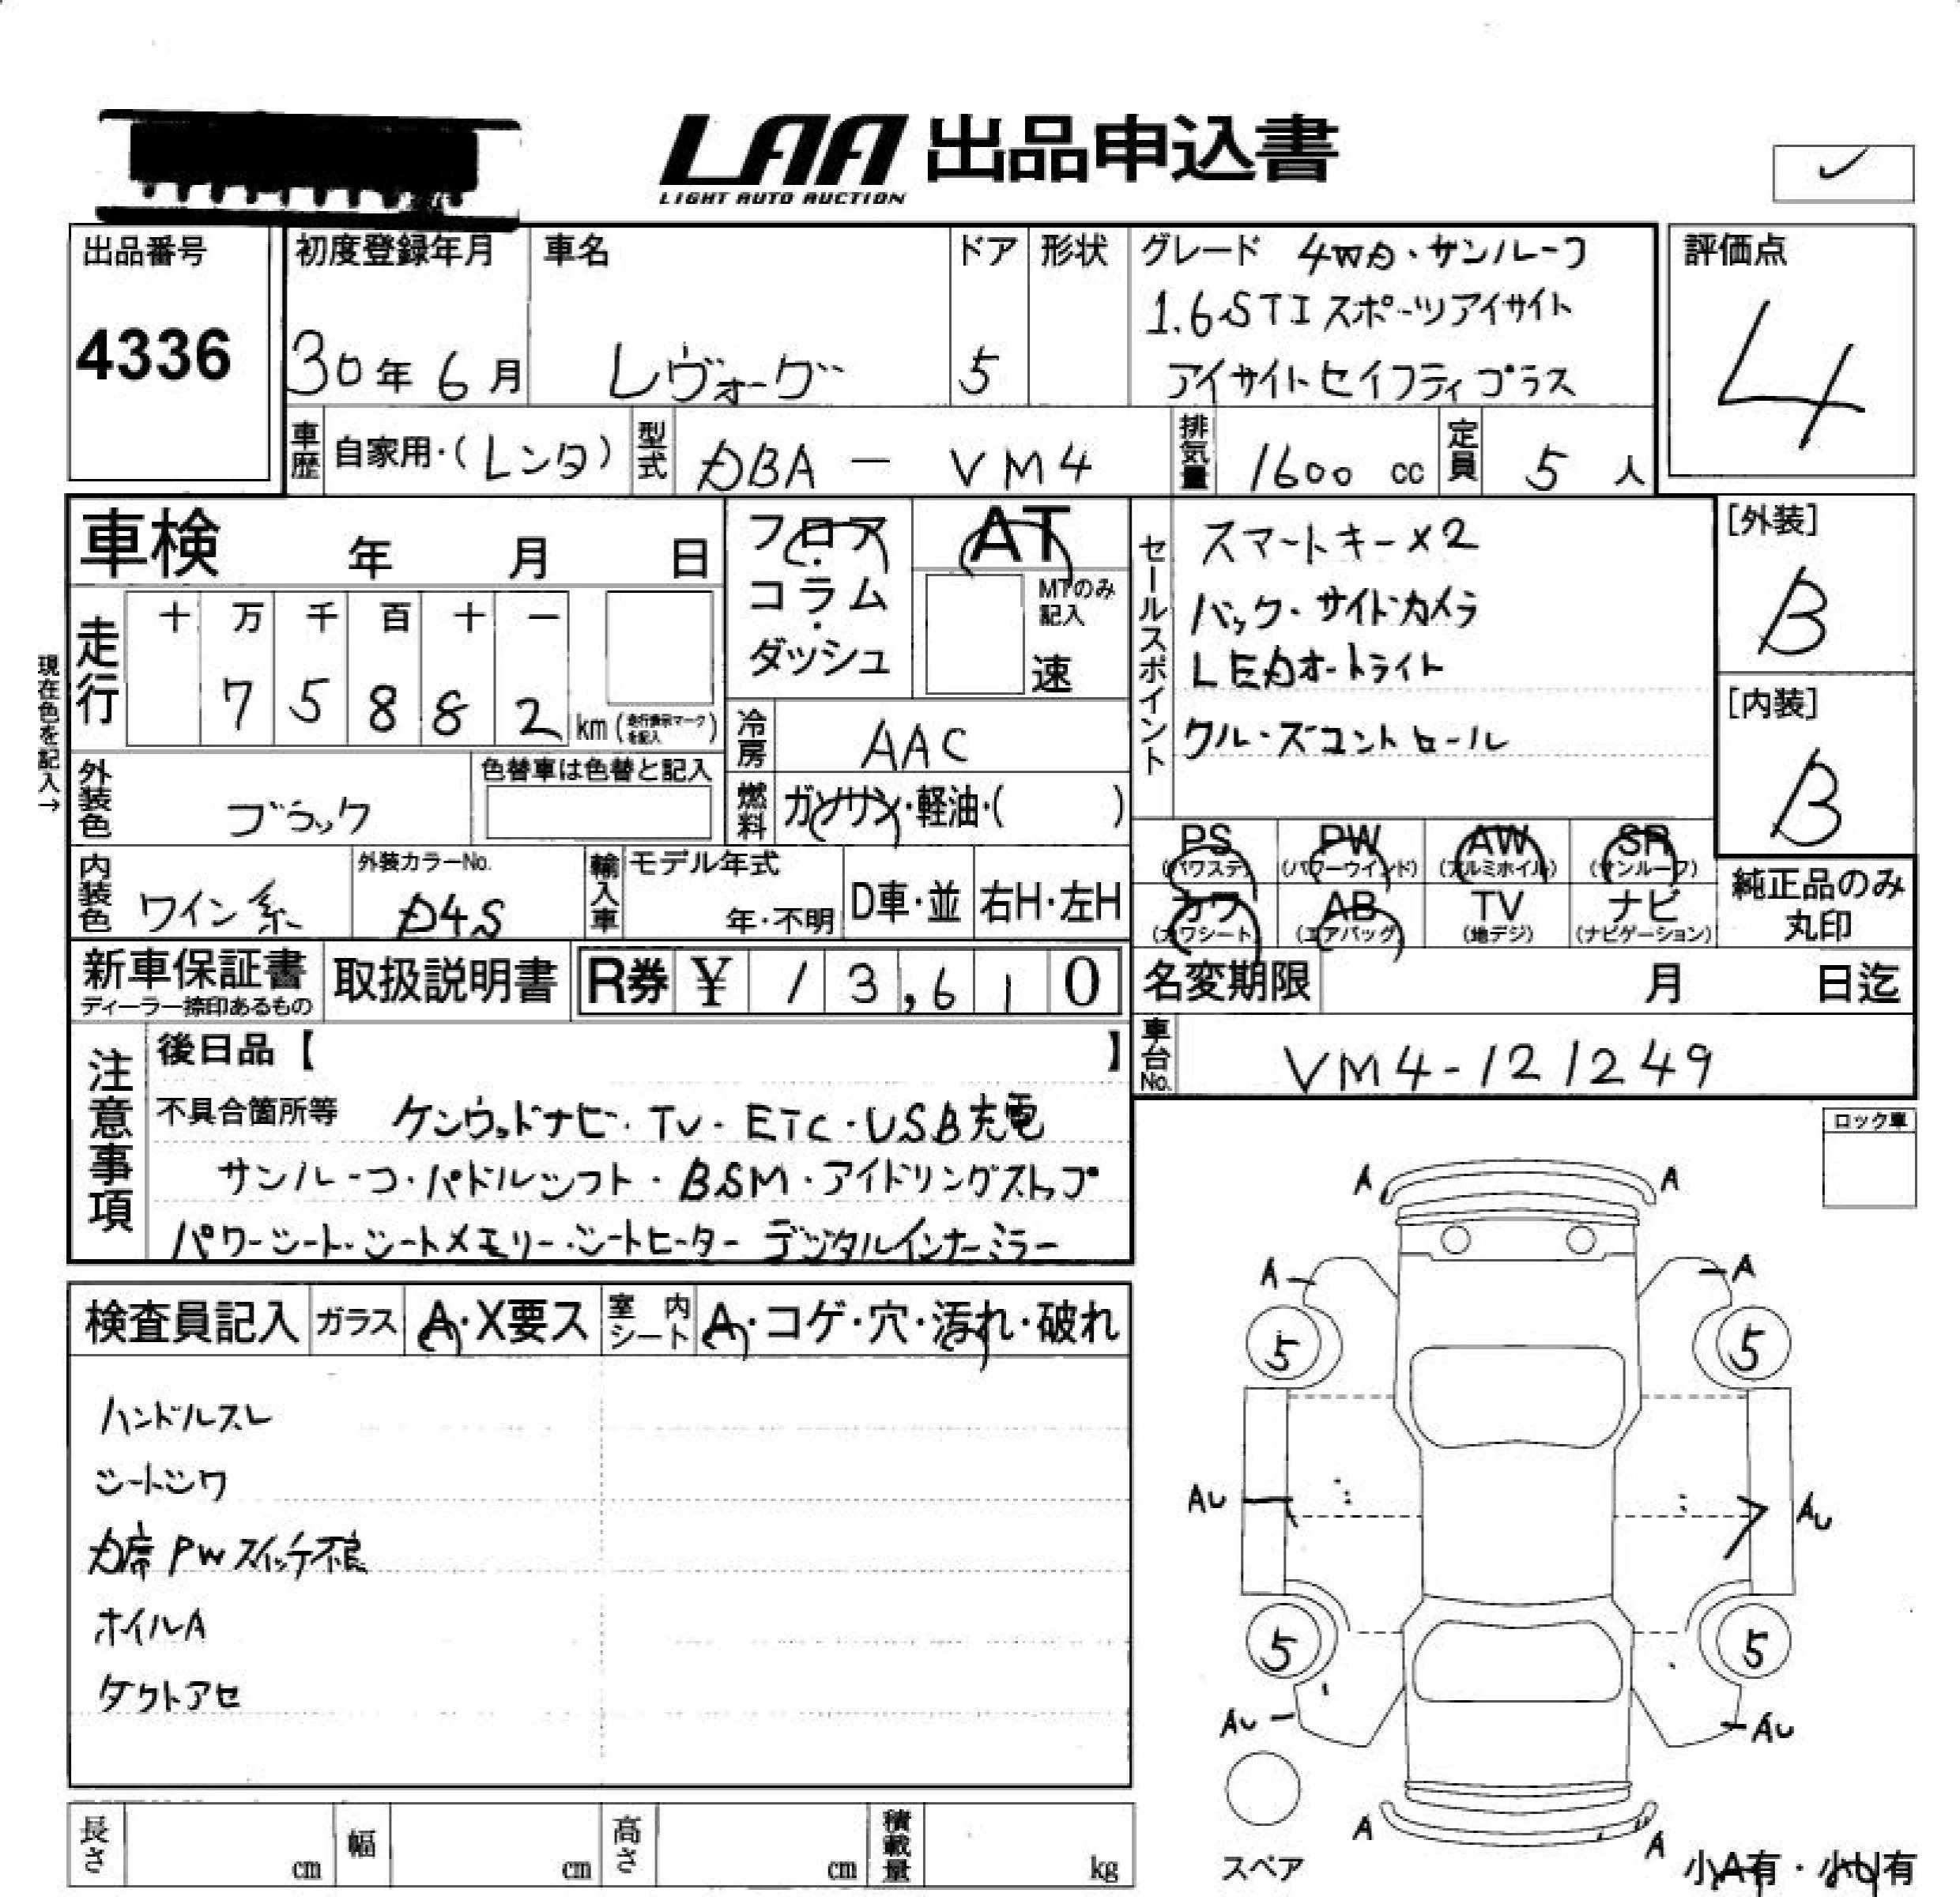 LAA 出品申込書
LIGHT AUTO AUCTION
出品番号
4336
初度登録年月
30年 6月
車名
レヴォーグ
ドア
5
形状
グレード 4WD・サンルーフ
1.6 STI スポーツアイサイト
アイサイトセイフティプラス
評価点
4
車歴 自家用・(レンタ)
型式 DBA - VM4
排気量 1600 cc
定員 5 人
車検 年 月 日
現在色を記入→
走行
十 万 千 百 十 一
7 5 8 8 2 km (走行表示マークを記入)
フロア
コラム
ダッシュ
AT
MTのみ
記入
速
冷房 AAC
燃料 ガソリン・軽油・( )
セールスポイント
スマートキー×2
バック・サイドカメラ
LEDオートライト
クルーズコントロール
[外装]
B
[内装]
B
外装色 ブラック
色替車は色替と記入
内装色 ワイン系
外装カラーNo.
D4S
輸入車
モデル年式
年・不明
D車・並
右H・左H
PS
(パワステ)
PW
(パワーウインド)
AW
(アルミホイル)
SR
(サンルーフ)
カワ
(カワシート)
AB
(エアバッグ)
TV
(地デジ)
ナビ
(ナビゲーション)
純正品のみ
丸印
新車保証書
ディーラー捺印あるもの
取扱説明書
R券 ¥ 13,610
名変期限 月 日迄
車台No. VM4-121249
注意事項
後日品【 】
不具合箇所等 ケンウッドナビ・TV・ETC・USB充電
サンルーフ・パドルシフト・BSM・アイドリングストップ
パワーシート・シートメモリー・シートヒーター デジタルインナーミラー
ロック車
検査員記入
ガラス A・X要ス
室内シート A・コゲ・穴・汚れ・破れ
ハンドルスレ
シートシワ
D席PWスイッチ不良
ホイルA
ダクトアセ
A A
A A
5 5
AU AU
5 5
AU AU
A A
スペア
小A有・小U有
長さ cm
幅 cm
高さ cm
積載量 kg